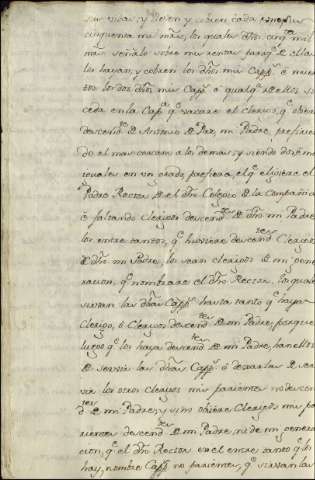 sus vidas, y lleven, y cobren cada
cinquenta mil mrs, los quales dhos cinq.ta mil
mrs señalo sobre mis rentas para q.e de ellas
los hayan, y cobren los dhos mis Capp.s ó mien
tras los dhos mis Capp.s ó qualq.a de ellos su
ceda en la Cap.a q.e vacare el clerigo, q.e
descend.te de Antonio de Paz, mi Padre, prefirien
do el mas cercano à los demas, y siendo dos ó mas
iguales en un grado prefiera, el q.e eligiere el
Padre Rector de el dho Colegio de la Compañia
è faltando Clerigos descend.tes de dho mi Padre
los entre tanto, q.e huviere descend.tes Clerigos
de dho mi Padre, lo sean clerigos de mi gene
racion, q.e nombrare el dho Rector, los quales
sirvan las dhas Capp.s hasta tanto q.e haya
Clerigo, ò Clerigos descend.tes de mi Padre, porque
luego q.e los haya descend.tes de mi Padre, han ellos
de servir las dhas Capp.s ò dexarlas de ser
vir los otros clerigos mis parientes no descen
d.tes de mi Padre, y si no obiere Clerigos mis pa
rientes descend.tes de mi Padre, ni de mi genera
cion, q.e el dho Rector en el entre tanto q.e los
hay, nombre Capp.s no parientes, q.e sirvan las